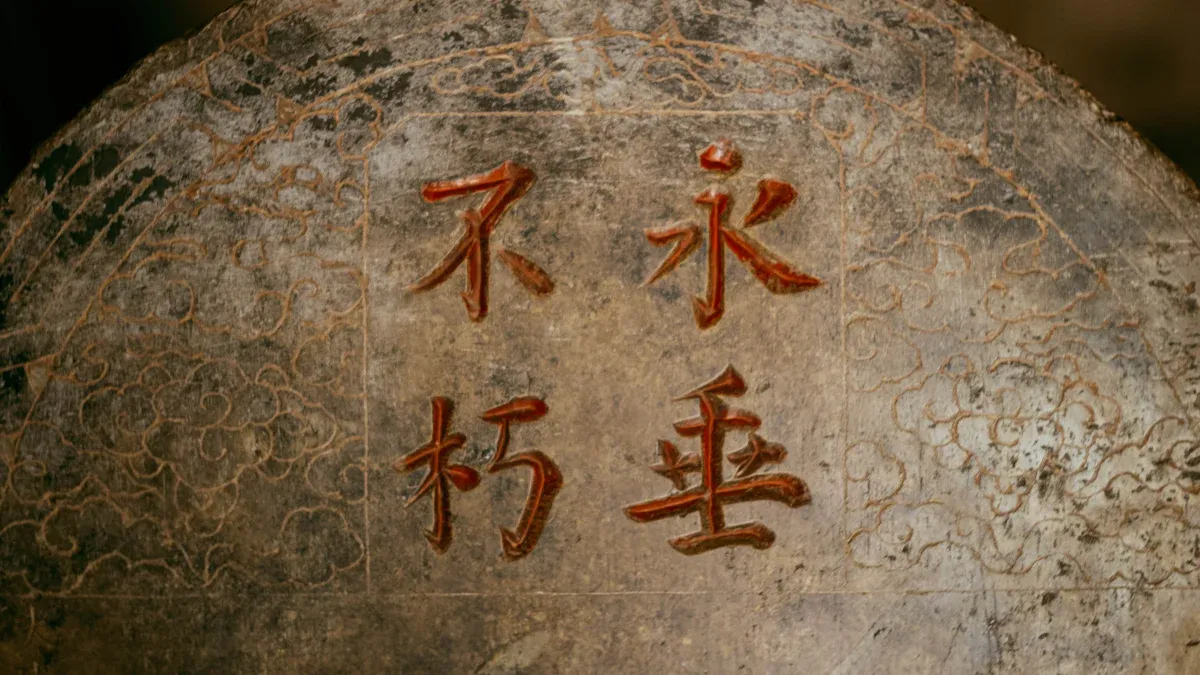 永垂
不朽